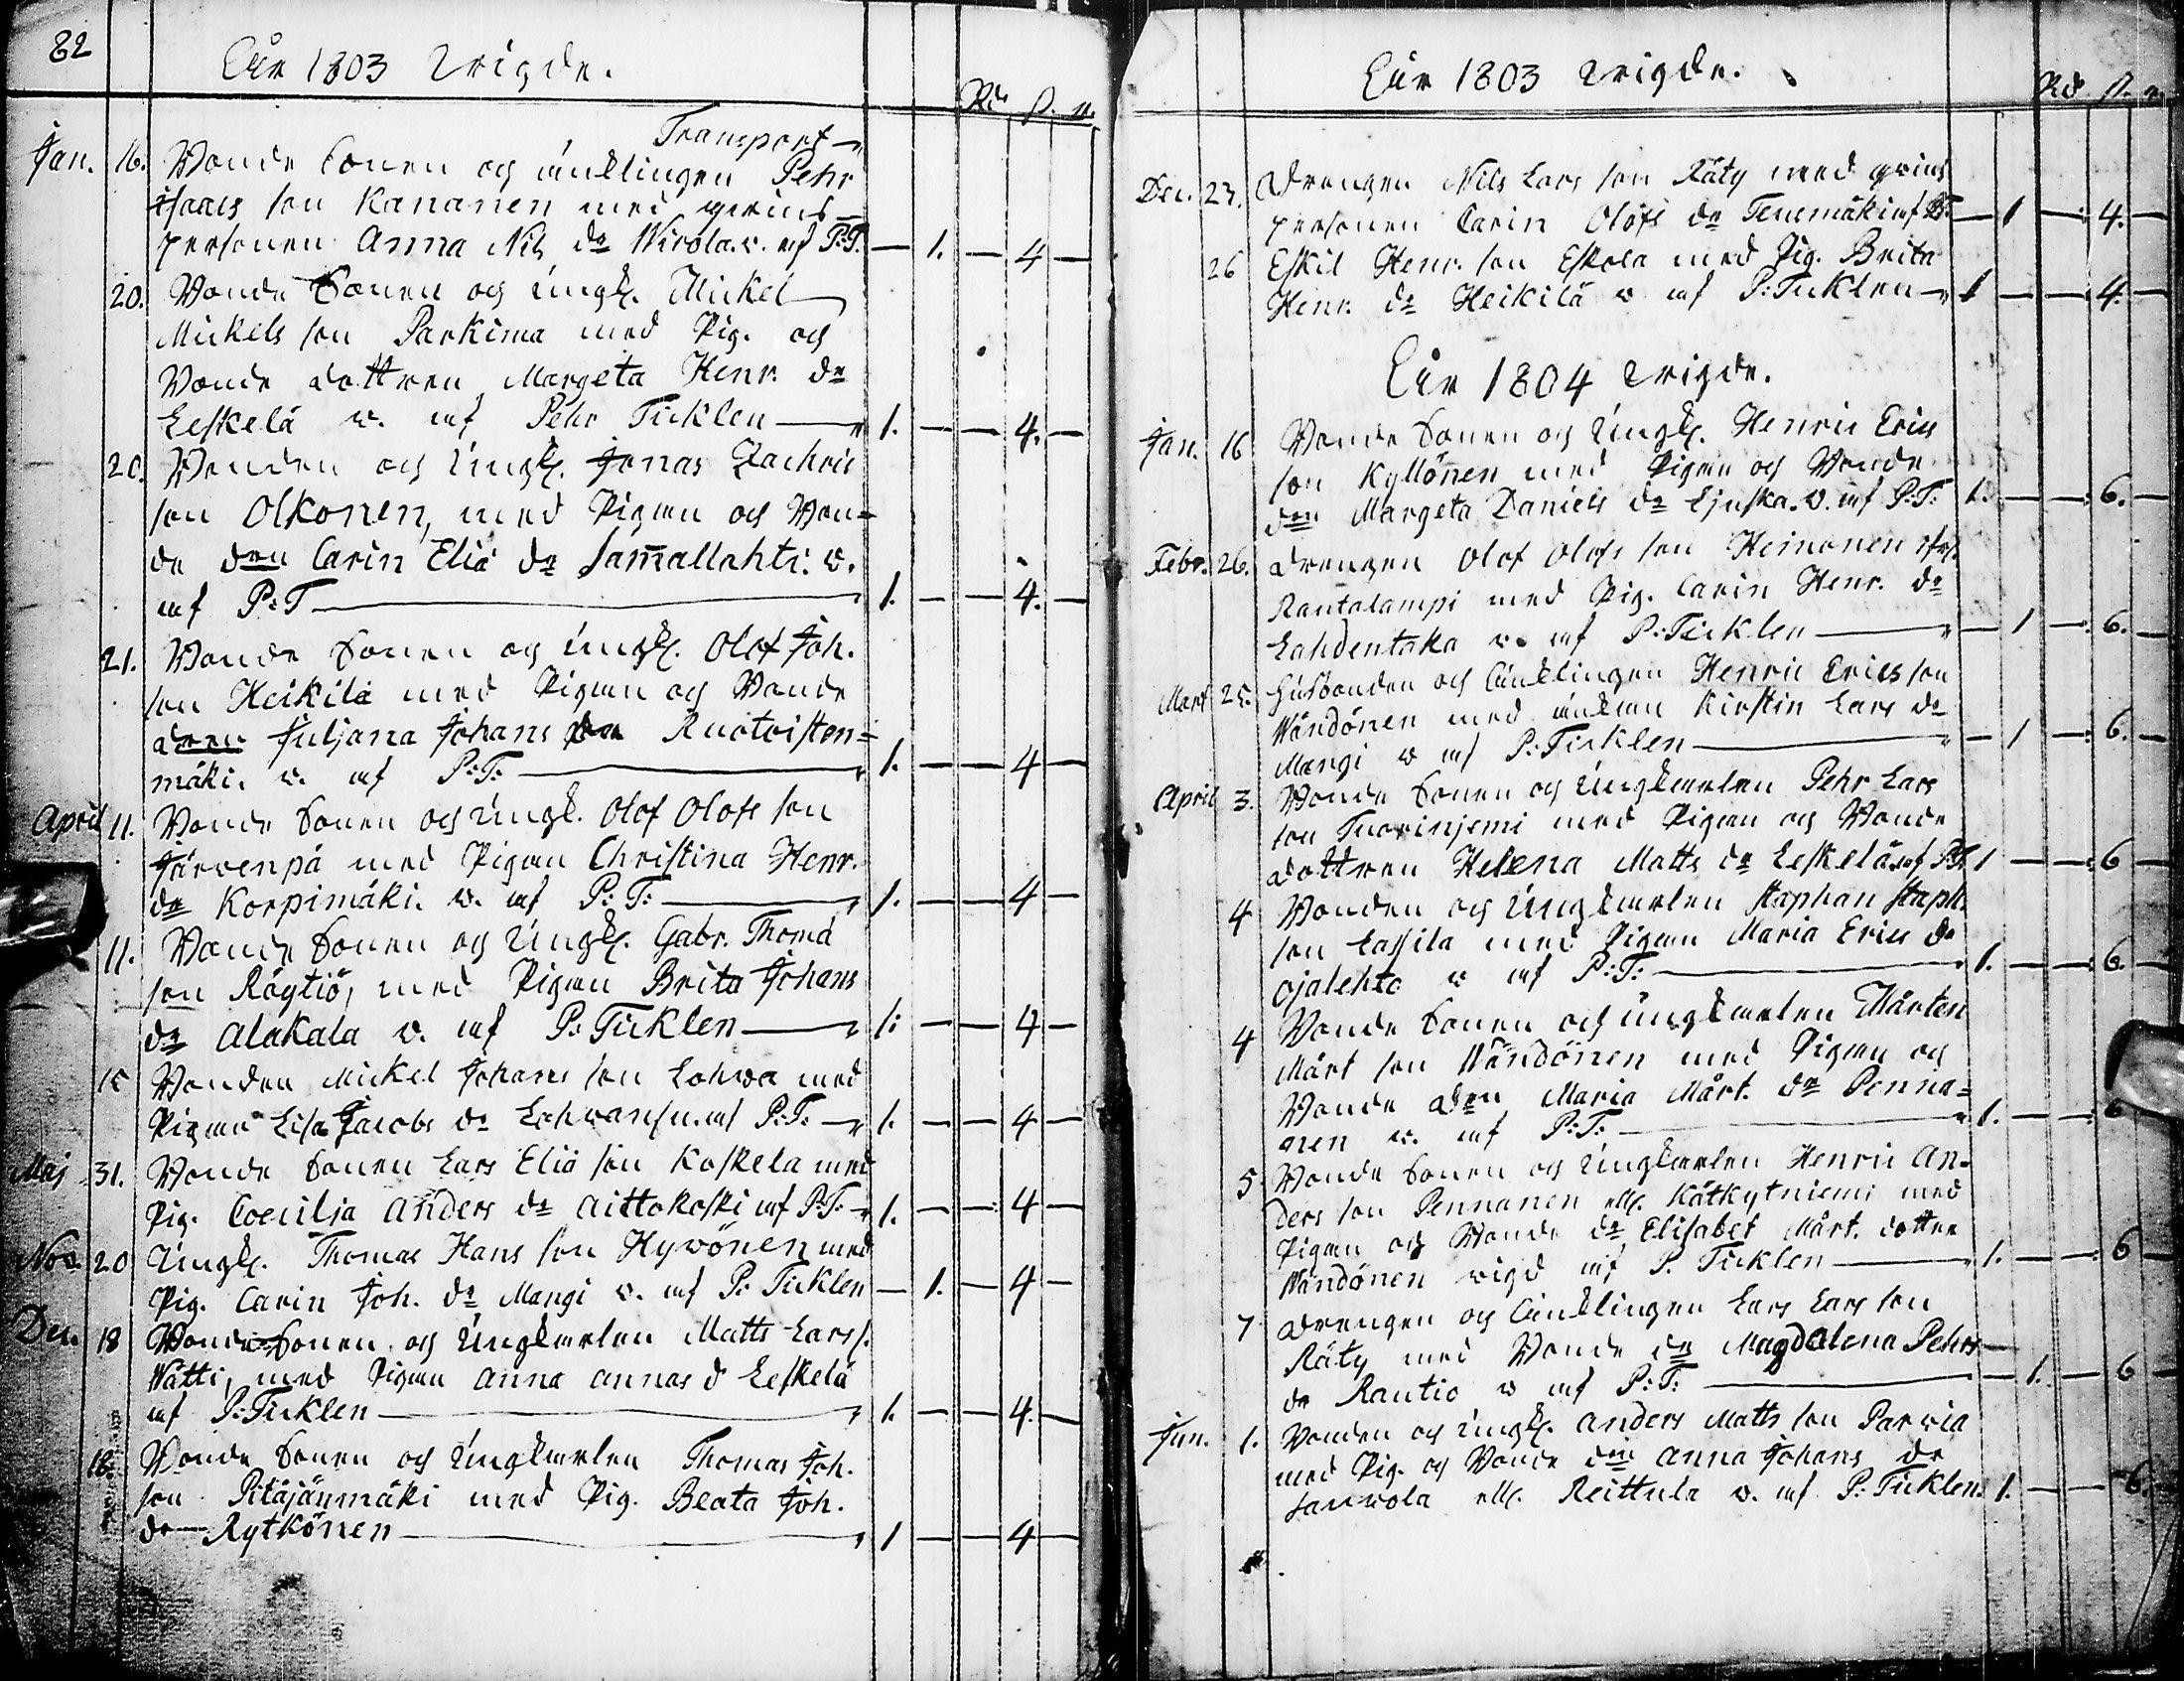 82
Åår 1803 Wigde.
Rd ß. r.
Transport
Jan. 16. Bonde Sonen og ünklingen Pehr
Isaacs son Kananen med qvins
personen Anna Nils dr Nirola. v. af P:T. — 1. — 4 —
20. Bonde Sonen og Ungk. Mickel
Mickels son Parkima med Pig. og
Bonde dottren Margeta Henr. dr
Leskelä v. af Pehr Ticklen — 1. — 4. —
20. Bonden og Ungk. Jonas Zachris
son Olkonen, med Pigan og Bon=
de dren Carin Eliä dr Sam̄allahti. v.
af P:T — 1. — 4. —
21. Bonde Sonen og Ungk. Olof Joh.
son Heikilä med Pigan og Bonde
dren Juljana Johans dr Ruotoisten=
mäki. v. af P:T: — 1. — 4
April 11. Bonde Sonen og Ungk. Olof Olofs son
Järvenpä med Pigan Christina Henr.
dr Korpimäki. v. af P:T: — 1. — 4 —
11. Bonde Sonen og Ungk. Gabr. Thomä
son Röytiö, med Pigan Brita Johans
dr Alakala v. af P: Ticklen — 1: — 4 —
15 Bonden Mickel Johans son Lohwa med
Pigan Lisa Jacobs dr Lohwansu. af P:T. — 1. — 4 —
Maj 31. Bonde Sonen Lars Eliä son Koskela med
Pig. Coecilja Anders dr Aittokoski af P:T. — 1. — 4 —
Nov. 20 Ungk. Thomas Hans son Hyvönen med
Pig. Carin Joh. dr Mangi v. af P: Ticklen — 1. — 4 —
Dec. 18 Bonde Sonen og Ungkarlen Matts Lars s.
Wätti, med Pigan Anna Annas d Leskelä
af P: Ticklen — 1. — 4. —
18. Bonde Sonen og Ungkarlen Thomas Joh.
son Pitäjänmäki med Pig. Beata Joh.
dr Rytkönen — 1 — 4 —
Åår 1803 Wigde.
Rd ß. r.
Dec. 23. Drengen Nils Lars son Räty med qvins
personen Carin Olofs dr Tenemäki af P:T. — 1 — 4. —
26 Eskil Henr. son Eskola med Pig. Brita
Henr. dr Heikilä v af P: Ticklen — 1 — 4. —
Åår 1804 Wigde.
Jan. 16 Bonde Sonen og Ungk. Henric Erics
son Kyllönen med Pigan og Bonde
dren Margeta Daniels dr Ljuska. v. af P:T: 1. — 6. —
Febr. 26. Drengen Olof Olofs son Heinonen
Rautalampi med Pig. Carin Henr. dr
Lahdentaka v. af P: Ticklen — 1 — 6. —
Mart 25. Husbonden og Ünklingen Henric Erics son
Wändönen med änkan Kirstin Lars dr
Mangi v af P: Ticklen — 1 — 6. —
April 3. Bonde Sonen og Ungkarlen Pehr Lars
son Tuorinjemi med Pigan og Bonde
dottren Helena Matts dr Leskelä af P:T. 1 — 6 —
4 Bonden og Ungkarlen Staphan Staph.
son Lassila med Pigan Maria Erics dr
Ojalehto v af P:T: — 1. — 6. —
4 Bonde Sonen og ungkarlen Mårten
Mårt son Wändönen med Pigan og
Bonde dren Maria Mårt. dr Penna=
nen v. af P:T: — 1. — 6
5 Bonde Sonen og Ungkarlen Henric An-
ders son Pennanen ell. Kätkytniemi med
Pigan og Bonde dr Elisabet Mårt. dotter
Wändönen vigd af P. Ticklen — 1. — 6
7 Drengen og Ünklingen Lars Lars son
Räty med Bonde dr Magdalena Pehrs
dr Rautio v af P:T: — 1. — 6
Jun. 1. Bonden og Ungk. Anders Matts son Parvia
med Pig. og Bonde dren Anna Johans dr
Sauvola ell. Reittula v. af P: Ticklen. 1. — 6.